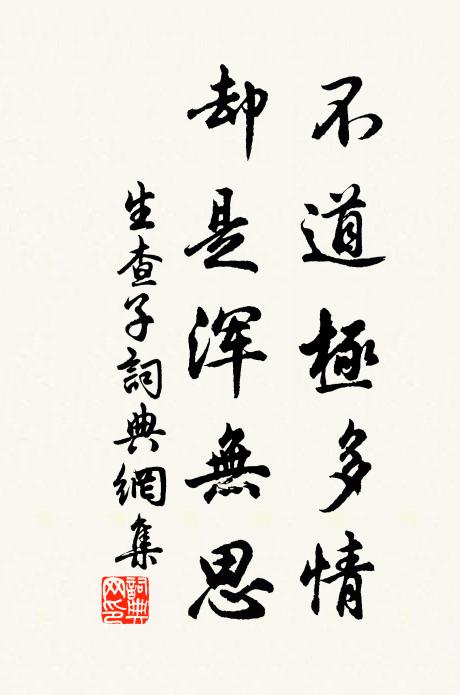 不道極多情
却是浑無思
生查子詞典網集
詞典
网印